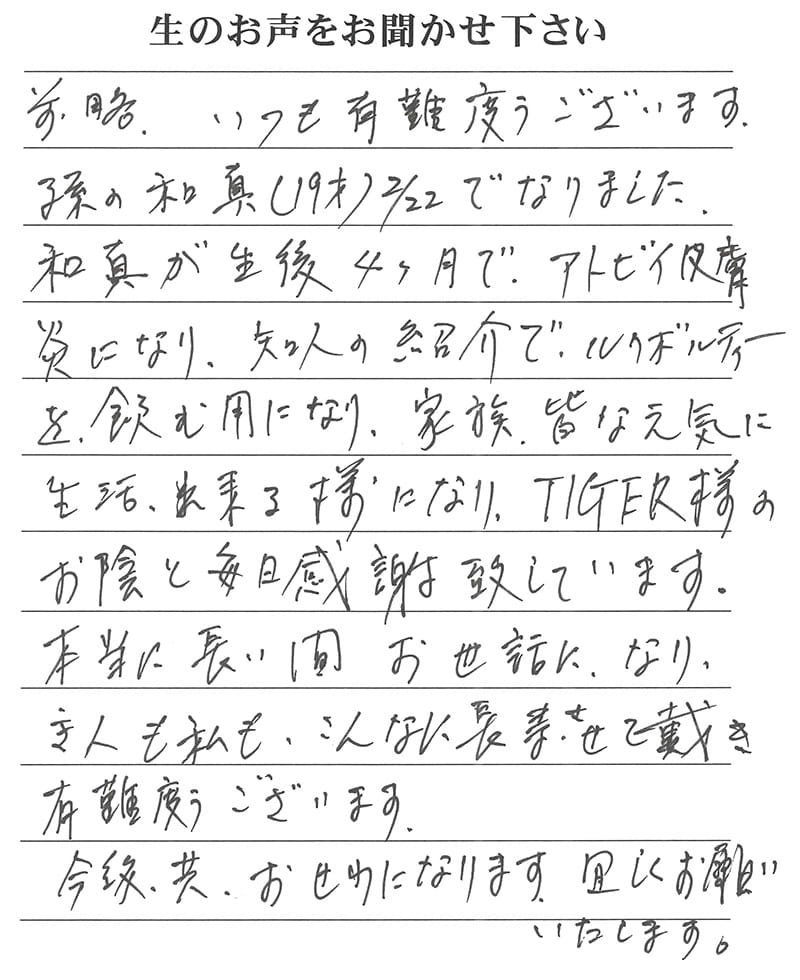 生のお声をお聞かせ下さい
前略. いつも有難度うございます.
孫の和真(19才)2/22でなりました.
和真が生後4ヶ月で.アトピイ皮膚
炎になり、知人の紹介で、ルクボルティー
を、飲む用になり、家族、皆な元気に
生活、出来る様になり、TIGER様の
お陰と毎日感謝は致しています。
本当に長い間 お世話に、なり、
主人も私も、こんなに長寿させて戴き
有難度うございます.
今後、共、おせわになります.宜しくお願い
いたします。